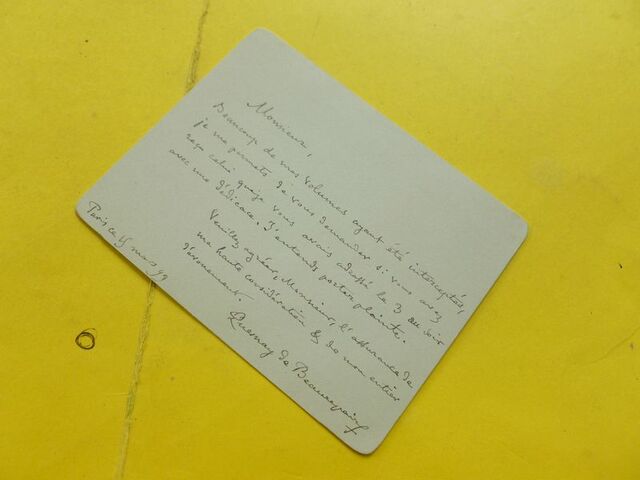 Monsieur,
Beaucoup de mes volumes ayant été interceptés,
je me permets de vous demander si vous avez
reçu celui que je vous avais adressé le 3 au soir
avec une dédicace. J'entends porter plainte.
Veuillez agréer, Monsieur, l'assurance de
ma haute considération & de mon entier
dévouement.
Quesnay de Beaurepaire
Paris ce mars 99